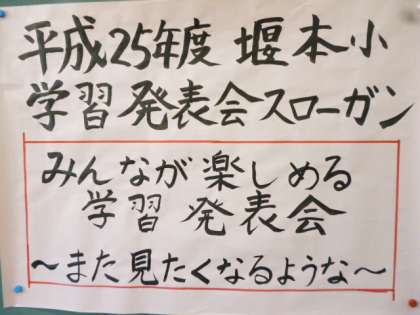 平成25年度 堰本小
学習発表会スローガン
みんなが楽しめる
学習発表会
～また見たくなるような～